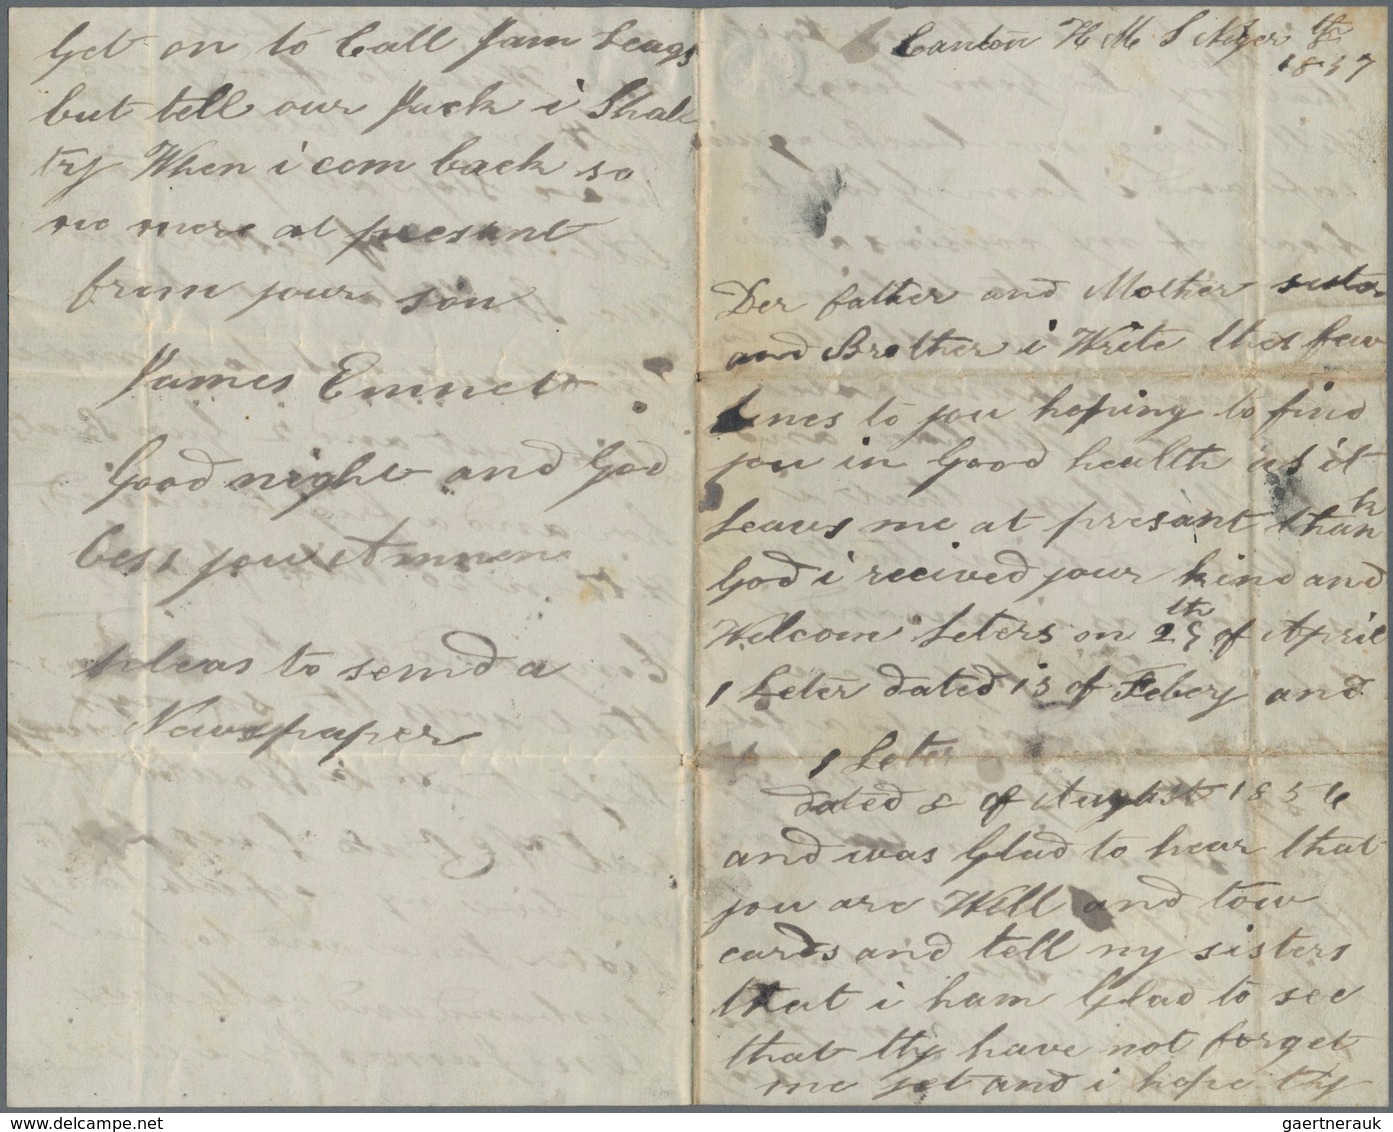 Get on to Call Jam Leags
but tell our Jack i Shall
try When i com back so
no more at presant
from your son
James Emnet
Good night and God
bess you Ammen
pleas to send a
Newspaper
Canton H M S Niger th
1857
Der father and Mother sister
and Brother i Write thes few
Lines to you hoping to find
you in Good health as it
Leavs me at presant thank
God i recived your kind and
Welcom Leters on 28th of April
1 Leter dated 13 of Febery and
1 Leter
dated 8 of August 1856
and was Glad to hear that
you are Well and tow
cards and tell my sisters
that i ham Glad to see
that thy have not forget
me yet and i hope thy
gaertnerauk